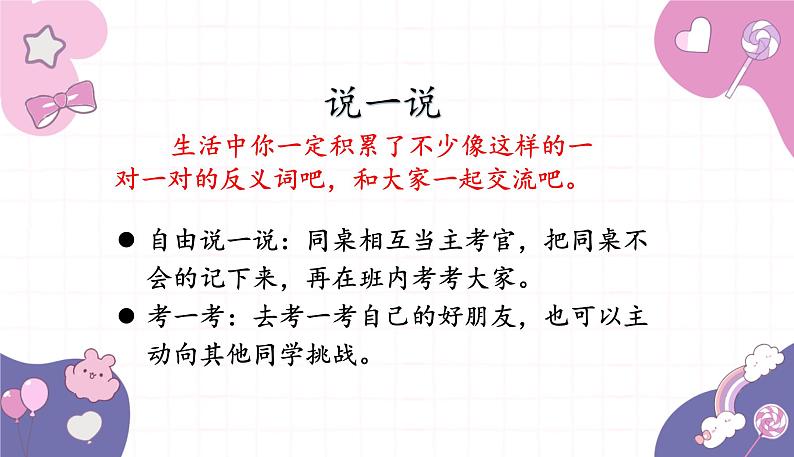 说一说
生活中你一定积累了不少像这样的一
对一对的反义词吧，和大家一起交流吧。
● 自由说一说：同桌相互当主考官，把同桌不
会的记下来，再在班内考考大家。
● 考一考：去考一考自己的好朋友，也可以主
动向其他同学挑战。